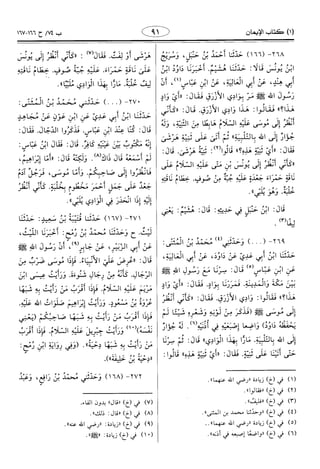 (١) كتاب الإيمان
٩١
ب ٧٥/ ح ١٦٦-١٦٧
٢٦٨- (١٦٦) حَدَّثَنَا أَحْمَدُ بْنُ حَنْبَلٍ، وَسُرَيْجُ
ابْنُ يُونُسَ قَالَا: حَدَّثَنَا هُشَيْمٌ. أَخْبَرَنَا دَاوُدُ ابْنُ
أَبِي هِنْدٍ، عَنْ أَبِي الْعَالِيَةِ، عَنِ ابْنِ عَبَّاسٍ(١)، أَنَّ
رَسُولَ اللهِ ﷺ مَرَّ بِوَادِي الْأَزْرَقِ. فَقَالَ: «أَيُّ وَادٍ
هَذَا؟» فَقَالُوا: هَذَا وَادِي الْأَزْرَقِ. قَالَ: «كَأَنِّي أَنْظُرُ
إِلَى مُوسَى عَلَيْهِ السَّلَامُ هَابِطًا مِنَ الثَّنِيَّةِ، وَلَهُ
جُؤَارٌ إِلَى اللهِ بِالتَّلْبِيَةِ» ثُمَّ أَتَى عَلَى ثَنِيَّةِ هَرْشَى
فَقَالَ: «أَيُّ ثَنِيَّةٍ هَذِهِ؟» قَالُوا(٢): ثَنِيَّةُ هَرْشَى. قَالَ:
«كَأَنِّي أَنْظُرُ إِلَى يُونُسَ بْنِ مَتَّى عَلَيْهِ السَّلَامُ عَلَى
نَاقَةٍ حَمْرَاءَ جَعْدَةٍ عَلَيْهِ جُبَّةٌ مِنْ صُوفٍ. خِطَامُ نَاقَتِهِ
خُلْبَةٌ. وَهُوَ يُلَبِّي».
قَالَ: ابْنُ حَنْبَلٍ فِي حَدِيثِهِ: قَالَ: هُشَيْمٌ: يَعْنِي
لِيفًا(٣).
٢٦٩- (...) وَحَدَّثَنِي(٤) مُحَمَّدُ بْنُ الْمُثَنَّى:
حَدَّثَنَا ابْنُ أَبِي عَدِيٍّ عَنْ دَاوُدَ، عَنْ أَبِي الْعَالِيَةِ،
عَنِ ابْنِ عَبَّاسٍ(٥) قَالَ: سِرْنَا مَعَ رَسُولِ اللهِ ﷺ
بَيْنَ مَكَّةَ وَالْمَدِينَةِ. فَمَرَرْنَا بِوَادٍ. فَقَالَ: «أَيُّ وَادٍ
هَذَا؟» فَقَالُوا: وَادِي الْأَزْرَقِ. فَقَالَ: «كَأَنِّي أَنْظُرُ
إِلَى مُوسَى ﷺ (فَذَكَرَ مِنْ لَوْنِهِ وَشَعْرِهِ شَيْئًا لَمْ
يَحْفَظْهُ دَاوُدُ) وَاضِعًا إِصْبَعَيْهِ فِي أُذُنَيْهِ(٦). لَهُ جُؤَارٌ
إِلَى اللهِ بِالتَّلْبِيَةِ. مَارًّا بِهَذَا الْوَادِي» قَالَ: ثُمَّ سِرْنَا
حَتَّى أَتَيْنَا عَلَى ثَنِيَّةٍ. فَقَالَ: «أَيُّ ثَنِيَّةٍ هَذِهِ» قَالُوا:
هَرْشَى أَوْ لِفْتٌ. فَقَالَ(٧): «كَأَنِّي أَنْظُرُ إِلَى يُونُسَ
عَلَى نَاقَةٍ حَمْرَاءَ. عَلَيْهِ جُبَّةُ صُوفٍ. خِطَامُ نَاقَتِهِ
لِيفٌ خُلْبَةٌ. مَارًّا بِهَذَا الْوَادِي مُلَبِّيًا».
٢٧٠- (...) حَدَّثَنِي مُحَمَّدُ بْنُ الْمُثَنَّى:
حَدَّثَنَا ابْنُ أَبِي عَدِيٍّ عَنِ ابْنِ عَوْنٍ، عَنْ مُجَاهِدٍ
قَالَ: كُنَّا عِنْدَ ابْنِ عَبَّاسٍ. فَذَكَرُوا الدَّجَّالَ. فَقَالَ:
إِنَّهُ مَكْتُوبٌ بَيْنَ عَيْنَيْهِ كَافِرٌ. قَالَ: فَقَالَ ابْنُ عَبَّاسٍ:
لَمْ أَسْمَعْهُ قَالَ ذَاكَ(٨). وَلَكِنَّهُ قَالَ: «أَمَّا إِبْرَاهِيمُ،
فَانْظُرُوا إِلَى صَاحِبِكُمْ. وَأَمَّا مُوسَى، فَرَجُلٌ آدَمُ
جَعْدٌ عَلَى جَمَلٍ أَحْمَرَ مَخْطُومٍ بِخُلْبَةٍ. كَأَنِّي أَنْظُرُ
إِلَيْهِ إِذَا انْحَدَرَ فِي الْوَادِي يُلَبِّي».
٢٧١- (١٦٧) حَدَّثَنَا قُتَيْبَةُ بْنُ سَعِيدٍ: حَدَّثَنَا
لَيْثٌ. ح وَحَدَّثَنَا مُحَمَّدُ بْنُ رُمْحٍ: أَخْبَرَنَا اللَّيْثُ،
عَنْ أَبِي الزُّبَيْرِ، عَنْ جَابِرٍ(٩)، أَنَّ رَسُولَ اللهِ ﷺ
قَالَ: «عُرِضَ عَلَيَّ الْأَنْبِيَاءُ. فَإِذَا مُوسَى ضَرْبٌ مِنَ
الرِّجَالِ. كَأَنَّهُ مِنْ رِجَالِ شَنُوءَةَ. وَرَأَيْتُ عِيسَى ابْنَ
مَرْيَمَ عَلَيْهِ السَّلَامُ. فَإِذَا أَقْرَبُ مَنْ رَأَيْتُ بِهِ شَبَهًا
عُرْوَةُ بْنُ مَسْعُودٍ. وَرَأَيْتُ إِبْرَاهِيمَ صَلَوَاتُ اللهِ عَلَيْهِ.
فَإِذَا أَقْرَبُ مَنْ رَأَيْتُ بِهِ شَبَهًا صَاحِبُكُمْ (يَعْنِي
نَفْسَهُ)(١٠) وَرَأَيْتُ جِبْرِيلَ عَلَيْهِ السَّلَامُ. فَإِذَا أَقْرَبُ
مَنْ رَأَيْتُ بِهِ شَبَهًا دِحْيَةُ». (وَفِي رِوَايَةِ ابْنِ رُمْحٍ:
«دِحْيَةُ بْنُ خَلِيفَةَ»).
٢٧٢- (١٦٨) وَحَدَّثَنِي مُحَمَّدُ بْنُ رَافِعٍ، وَعَبْدُ
(١) في (خ) زيادة: «رضي الله عنهما».
(٢) في (خ): «فقالوا».
(٣) في (خ): «ليف».
(٤) في (خ): «وحدثنا محمد بن المثنى».
(٥) في (خ) زيادة: «رضي الله عنهما».
(٦) في (خ): «واضعًا إصبعه في أذنه».
(٧) في (خ): «قال» بدون الفاء.
(٨) في (خ): «قال: ذلك».
(٩) في (خ) زيادة: «رضي الله عنه».
(١٠) في (خ) زيادة: «ﷺ».